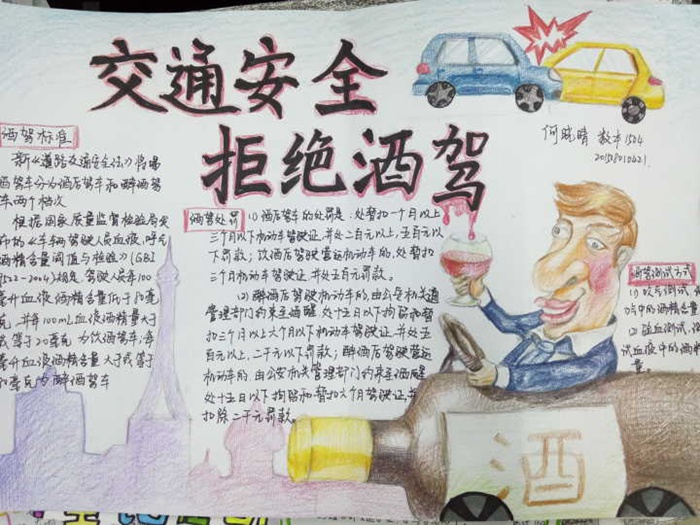 交通安全
拒绝酒驾
何晓晴 数本1504
酒驾标准
新《道路交通安全法》将
酒驾车分为酒后驾车和醉酒驾
车两个档次
根据国家质量监督检验局发
布的《车辆驾驶人员血液、呼气
酒精含量阈值与检验》(GB1
9522-2004)规定,驾驶人员每100
毫升血液酒精含量低于80毫
克,并每100mL血液酒精量大于
或等于20毫克为饮酒驾车;每
毫升血液酒精含量大于或等于
80毫克为醉酒驾车
酒驾处罚
(1)酒后驾车的处罚是:处暂扣一个月以上
三个月以下机动车驾驶证,并处二百元以上,五百元以
下罚款;饮酒后驾驶营运机动车的,处暂扣
三个月机动车驾驶证,并处五百元罚款。
(2)醉酒后驾驶机动车的,由公安机关交通
管理部门约束至酒醒,处十五日以下拘留和暂
扣三个月以上六个月以下机动车驾驶证,并处五
百元以上,二千元以下罚款;醉酒后驾驶营运
机动车的,由公安机关管理部门约束至酒醒,
处十五日以下拘留和暂扣六个月驾驶证,并
扣除二千元罚款。
酒驾测试方式
(1)呼气测试
吸中的酒精含量
(2)验血测试
试血液中的酒精
量。
酒